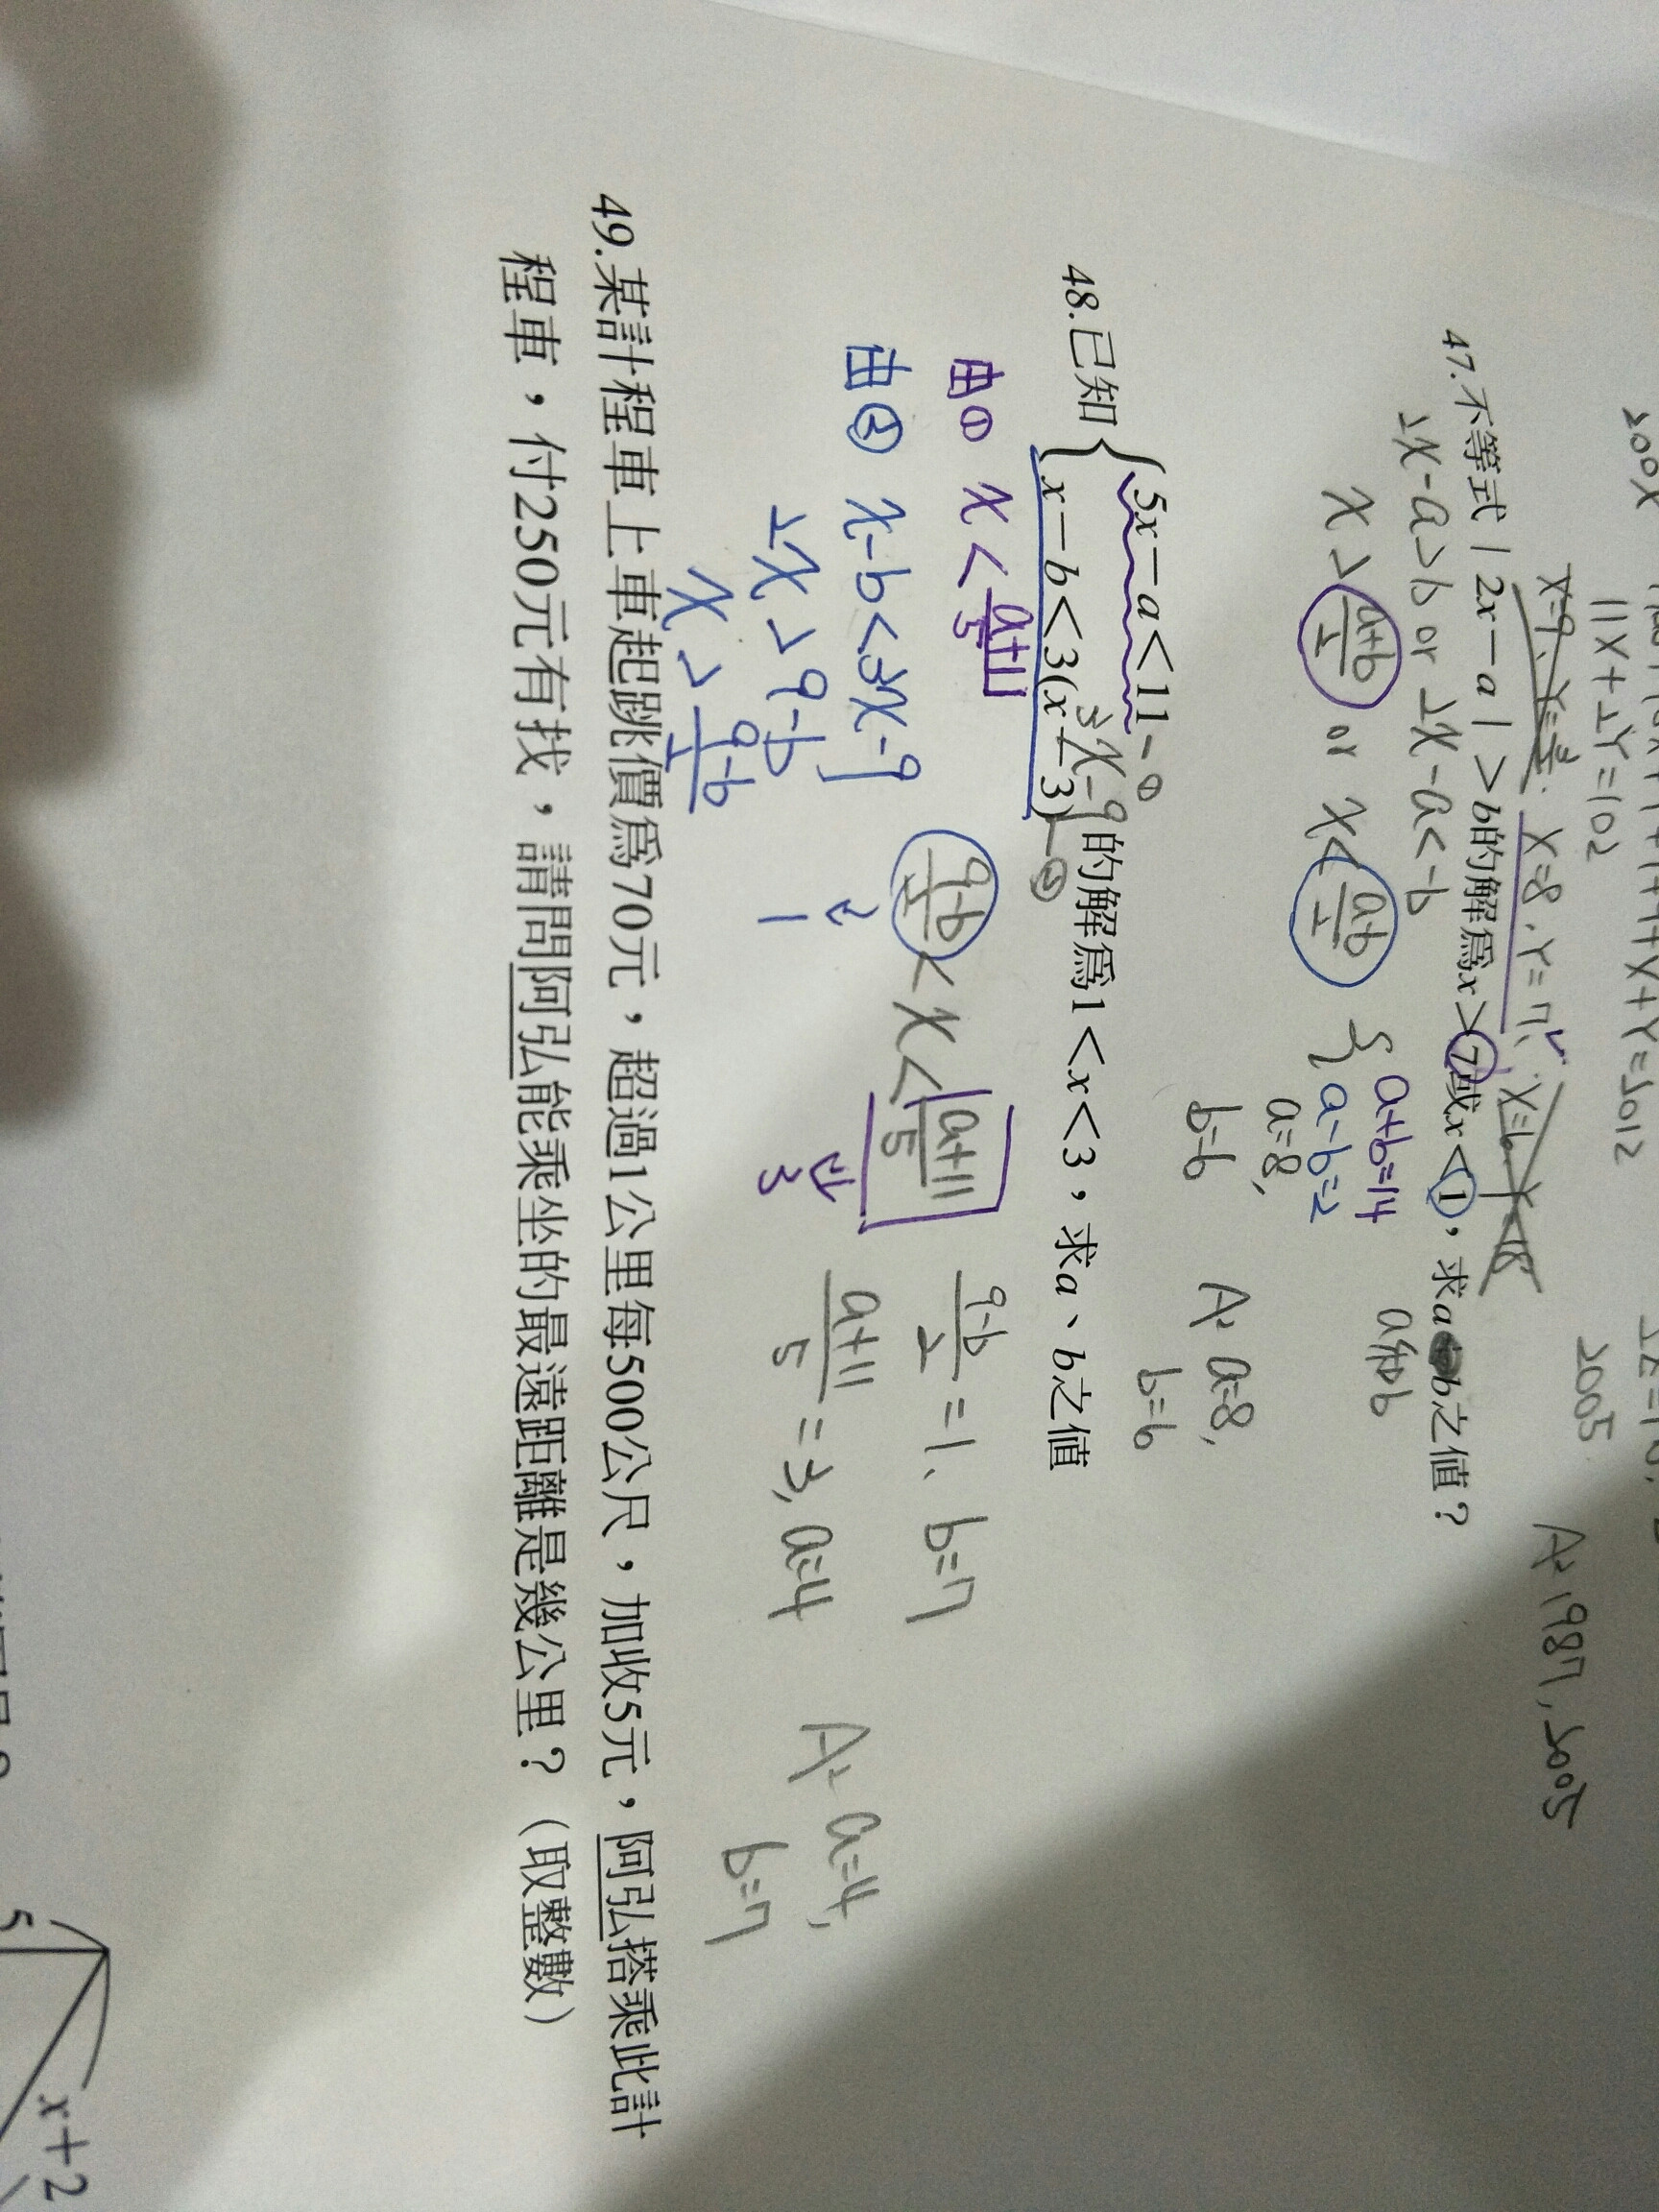 200X
11X+2Y=102
X+Y=2012
X=9、Y=3/2. X=8、Y=7、 X=6、Y=18
2005
A:1987, 2005
47.不等式｜2x－a｜＞b的解爲x＞7或x＜1，求a b之值？
a和b
2x-a>b or 2x-a<-b
x > a+b/2 or x< a-b/2
{ a+b=14
a-b=2
a=8,
b=6
A: a=8,
b=6
48.已知{5x－a＜11 -①
x－b＜3(x－3) -② 的解爲1＜x＜3，求a、b之值
3x-9
由① x < a+11/5
由② x-b<3x-9
2x > 9-b
x > 9-b/2
9-b/2 < x < a+11/5
⇓ 1
⇓ 3
9-b/2 = 1、b=7
a+11/5 = 3, a=4
A: a=4,
b=7
49.某計程車上車起跳價爲70元，超過1公里每500公尺，加收5元，阿弘搭乘此計
程車，付250元有找，請問阿弘能乘坐的最遠距離是幾公里？（取整數）
5
x+2